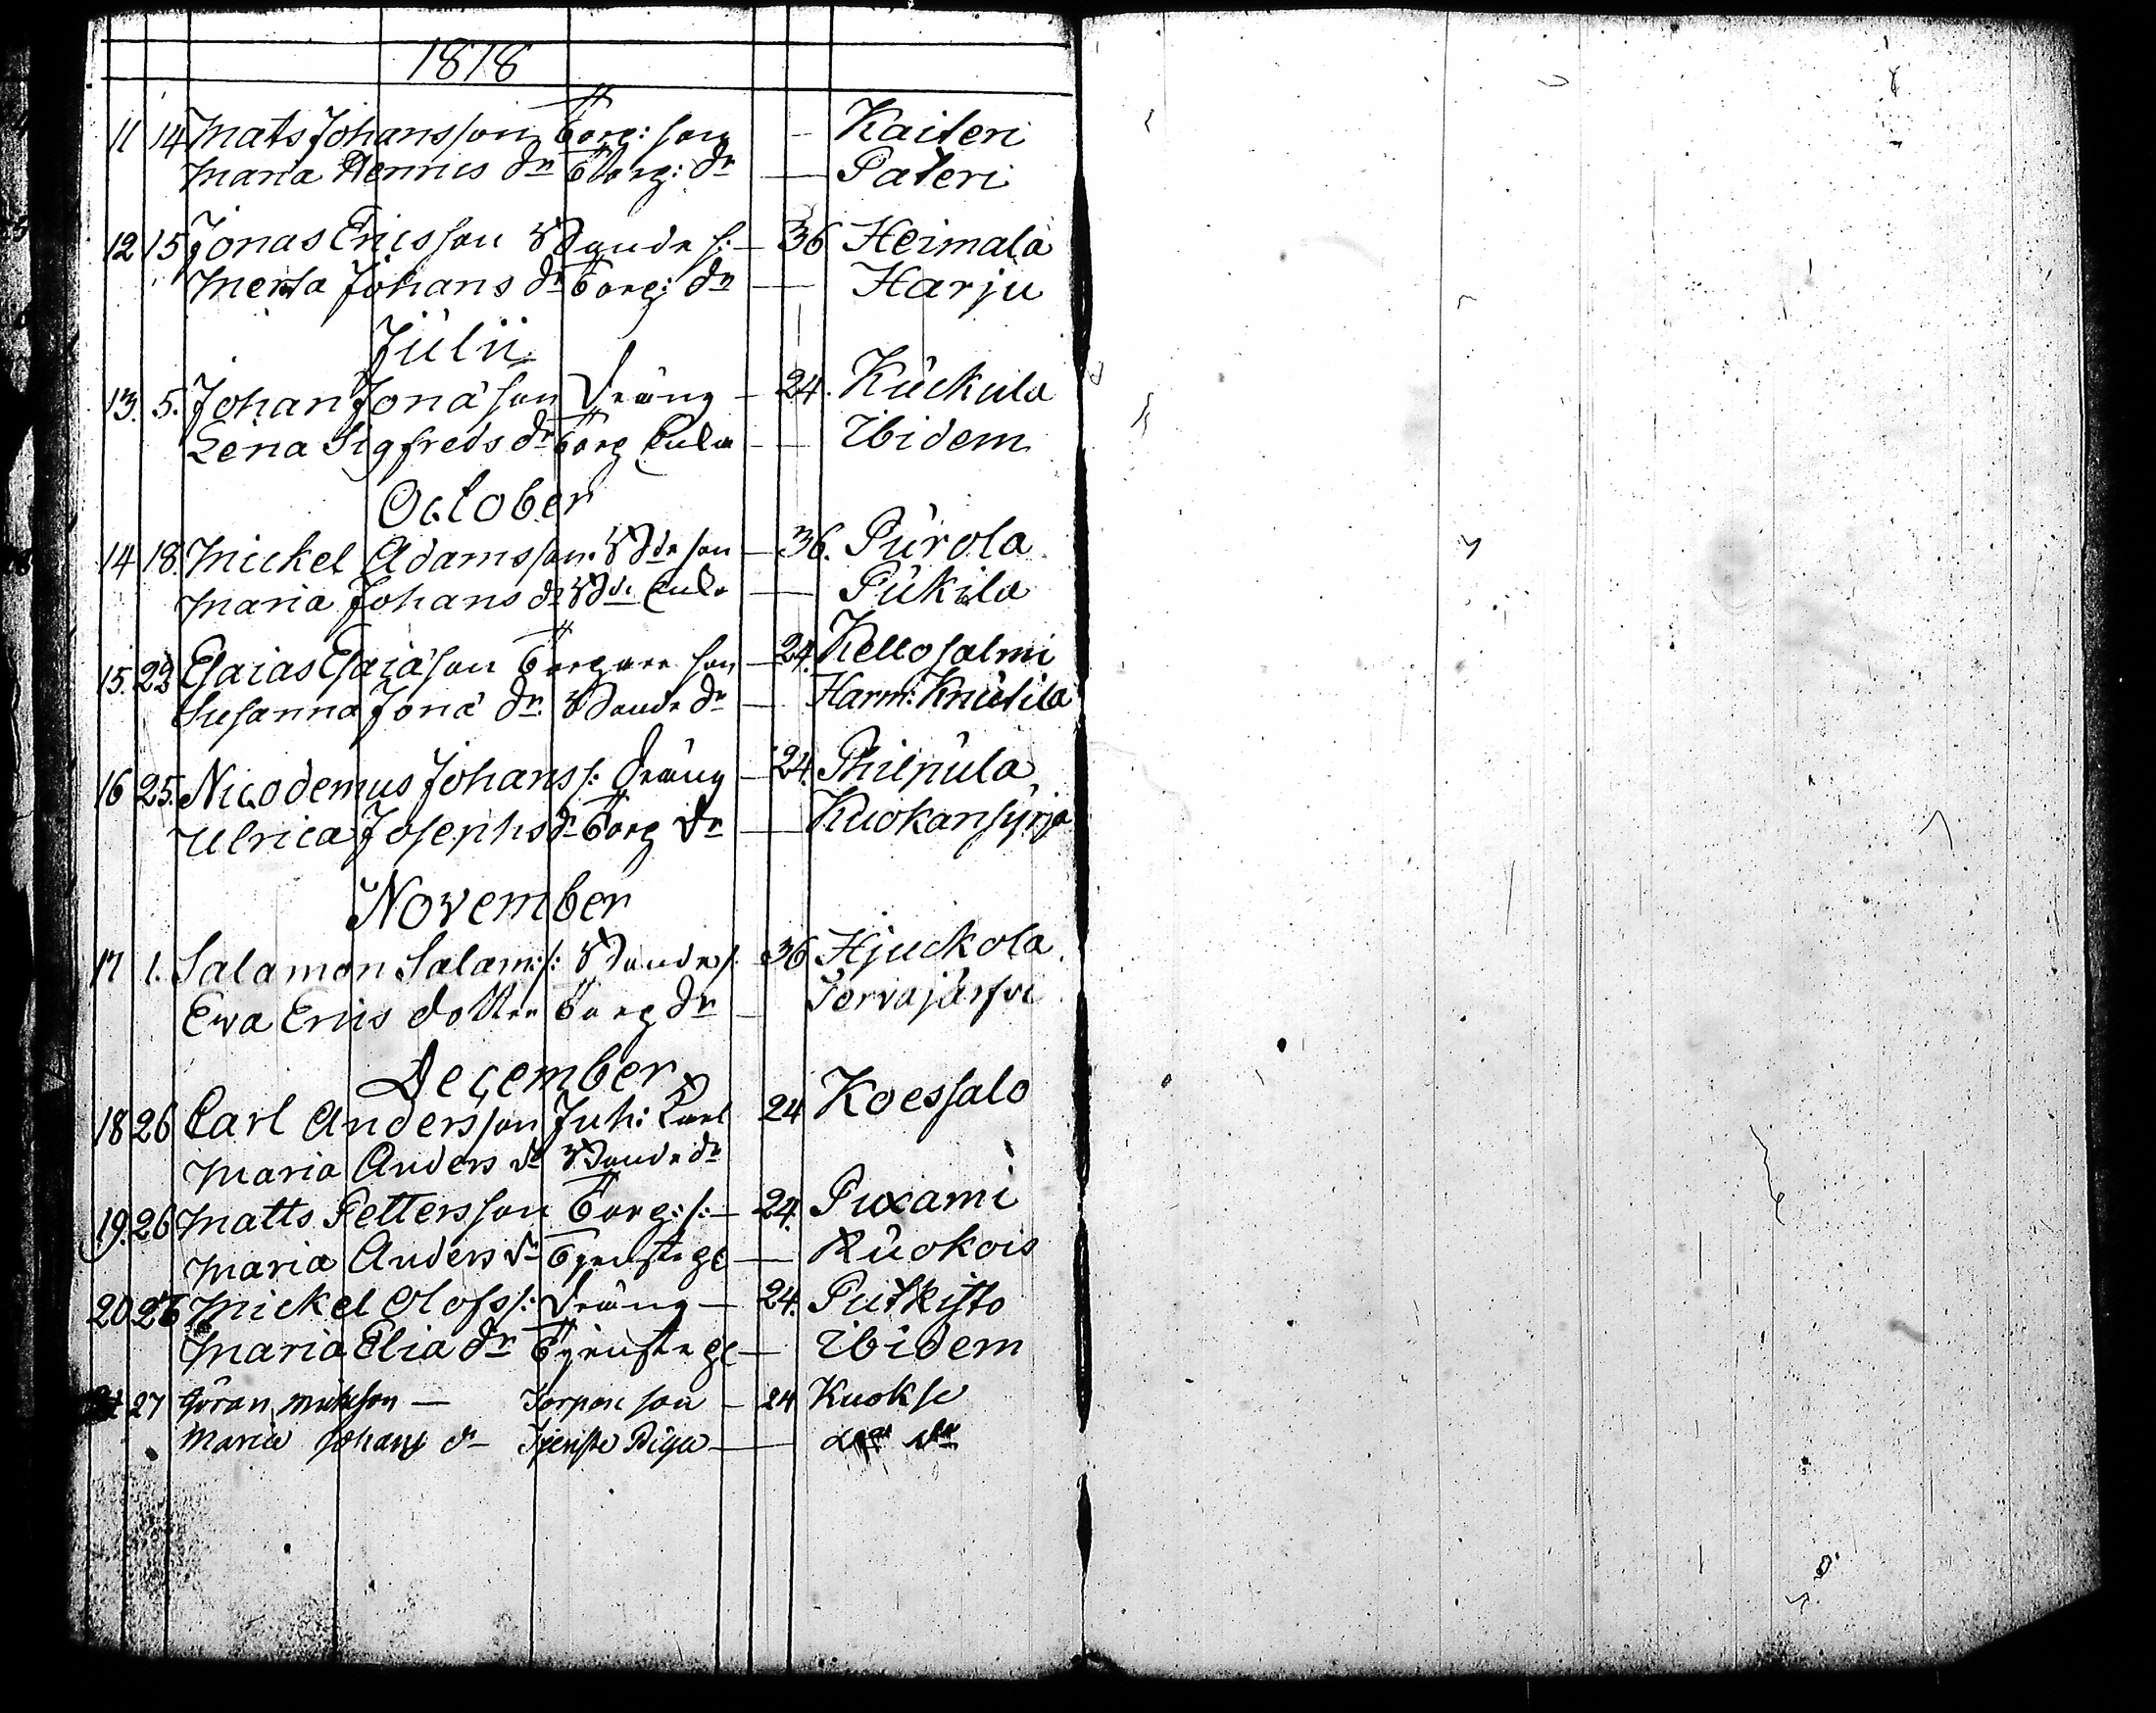 1818
11 14 Mats Johansson Torp: son - Kaiteri
Maria Henrics dr Torp: dr — Pateri
12 15 Jonas Ericsson Bonde s: — 36 Heimala
Merta Johans dr Torp: dr — Harju
Julii
13. 5. Johan Jonæson Dräng — 24. Kuckula
Lena Sigfreds dr Torp Enka — Ibidem
October
14 18. Mickel Adamsson Bde son — 36. Purola
Maria Johans dr Bde Enka — Pukila
15. 23 Esaias Esaiæson Torpare son — 24. Kellosalmi
Susanna Jonæ dr. Bonde dr — Harm: Knutila
16 25. Nicodemus Johans s: Dräng — 24. Philpula
Ulrica Josephs dr Torp dr — Kuokansyrja
November
17 1. Salamon Salam: s: Bonde s. 36 Hjuckola
Ewa Erics dotter Torp dr — Torvajärfvi
December
18 26 Carl Andersson Inh: Karl 24 Koessalo
Maria Anders dr Bonde dr
19. 26 Matts Pettersson Torp: s: — 24. Puxami
Maria Anders dr Tjenste ge — Kuokois
20 26 Mickel Olofs s: Dräng — 24. Putkisto
Maria Elia dr Tjenste ge — Ibidem
27 Göran Mickelson — Torpare son — 24 Kuokse
Maria Johans dr Tjenste Piga —